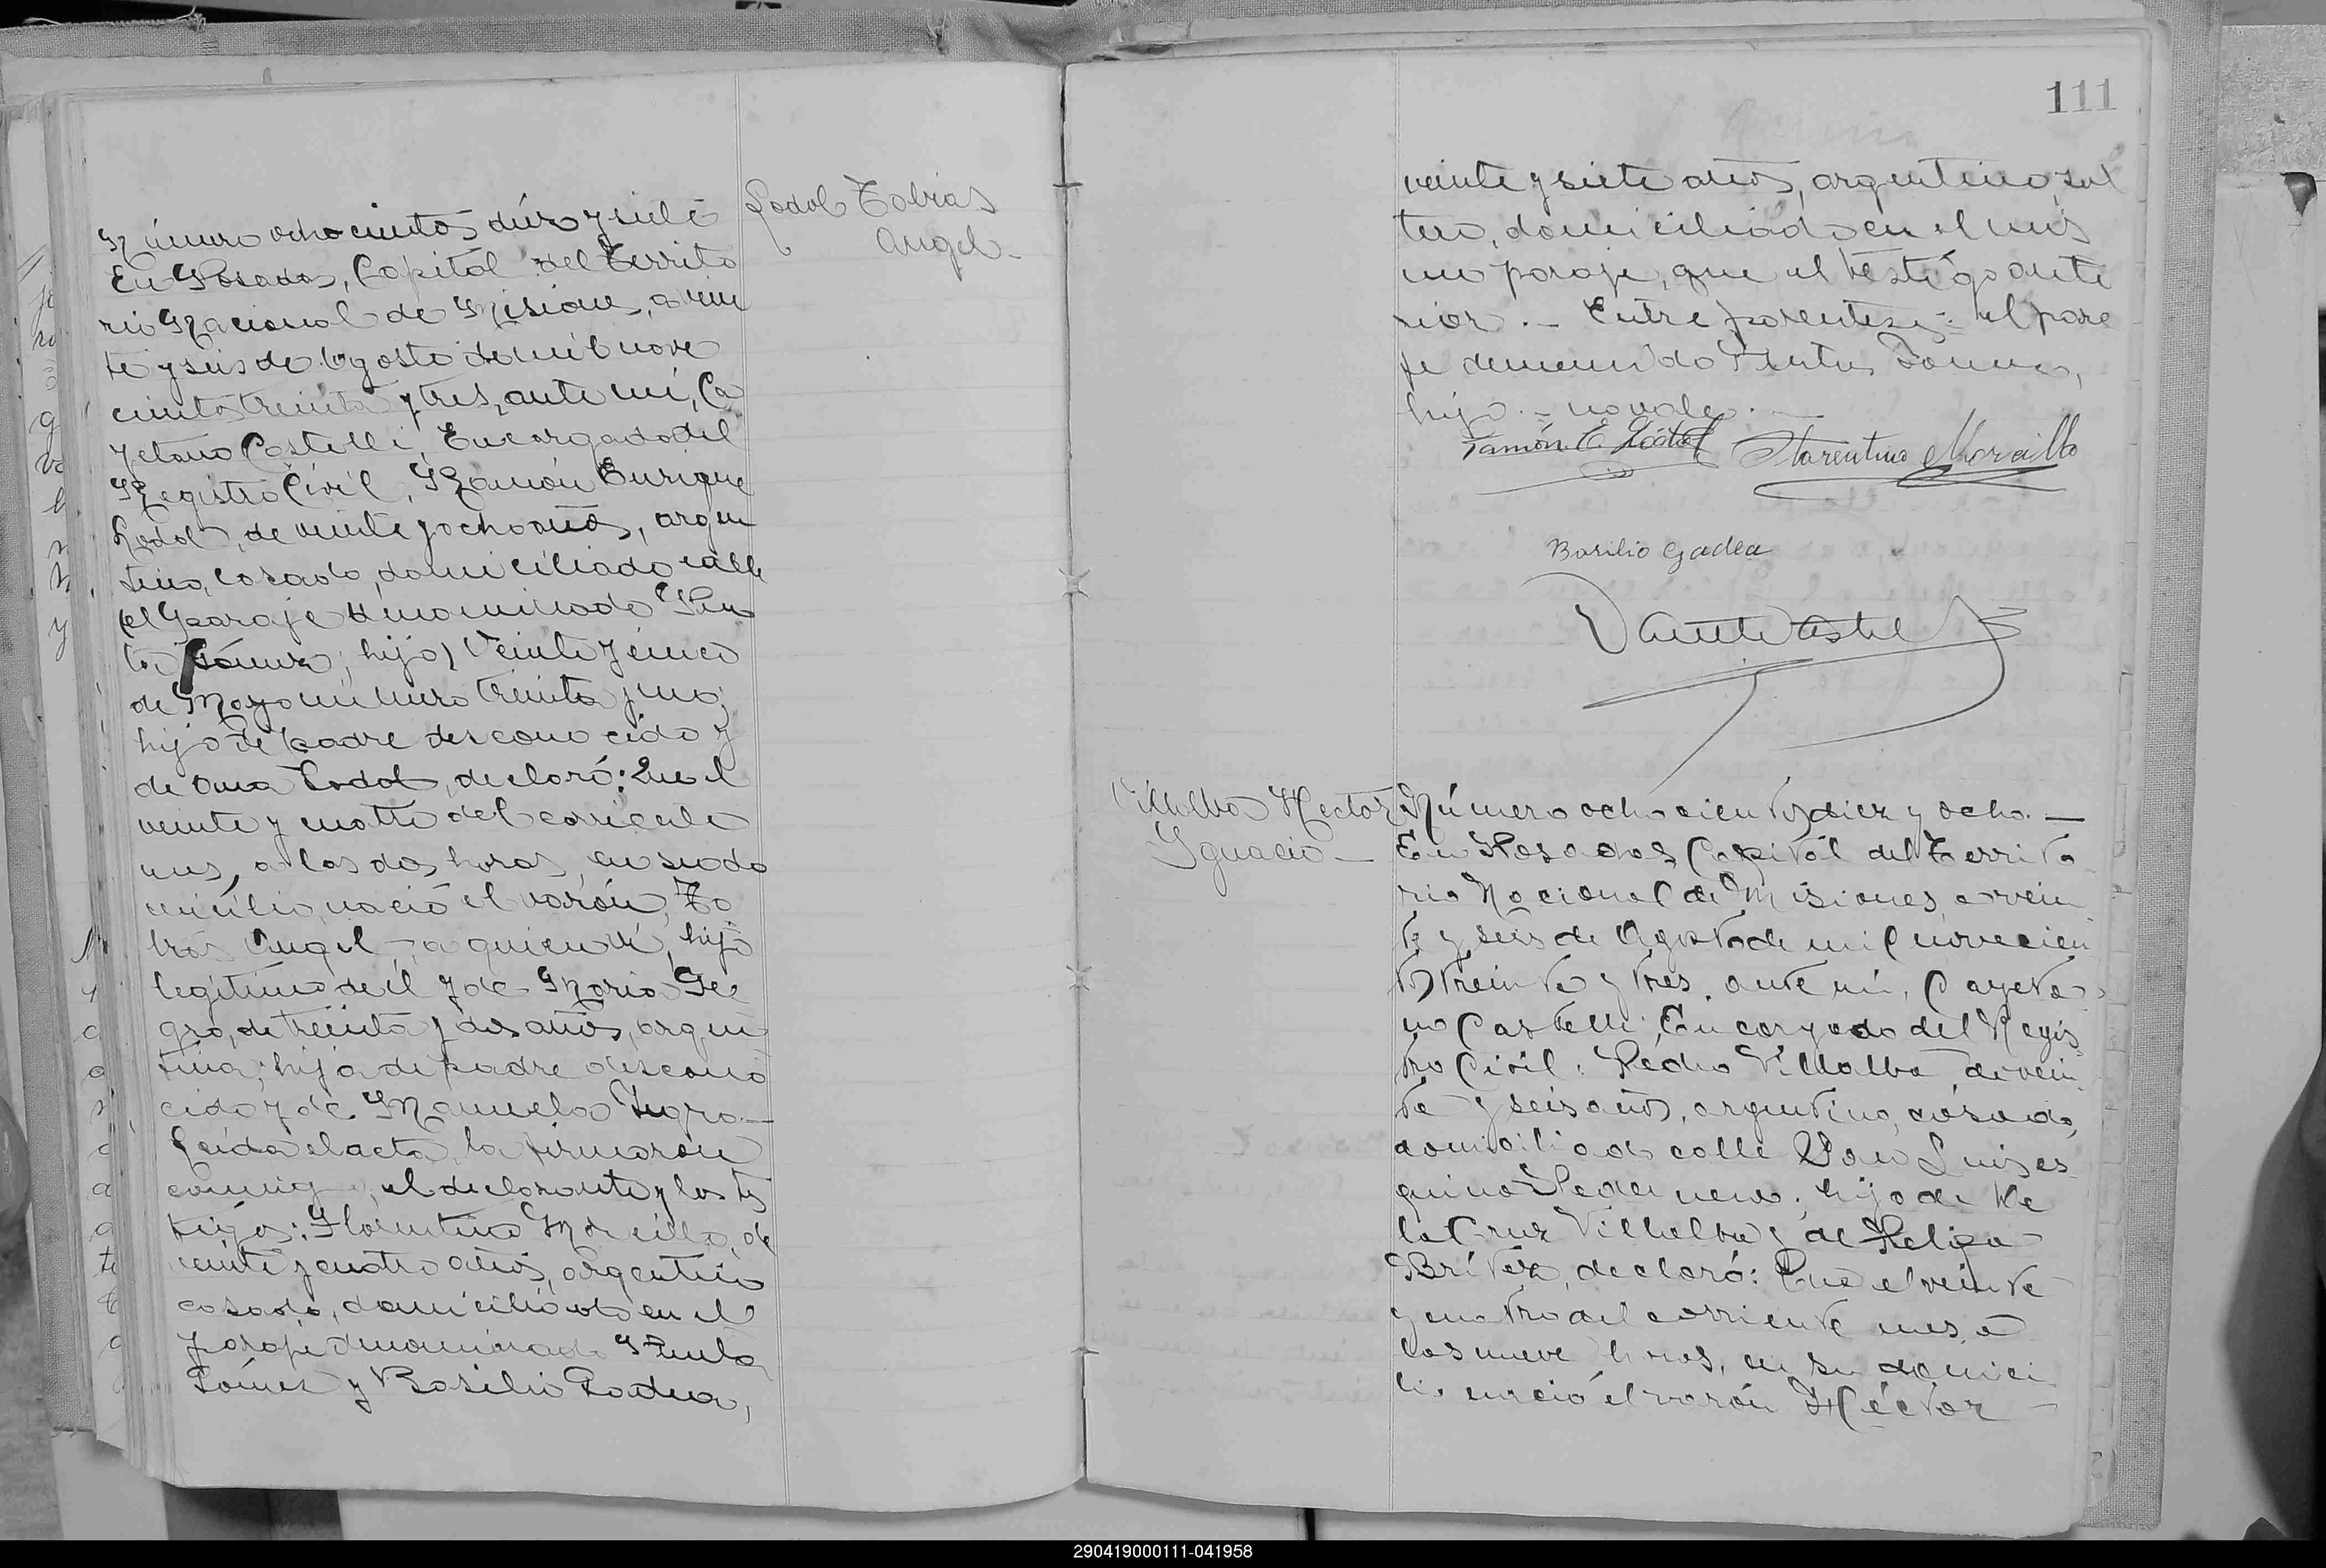 Lodol Tobias
Angel
Número ochocientos diez y siete
En Posadas, Capital del Territo
rio Nacional de Misiones, a vein
te y seis de Agosto de mil nove
cientos treinta y tres, ante mí, Ca
yetano Castelli, Encargado del
Registro Civil, Ramón Enrique
Lodol, de veinte y ocho años, argen
tino, casado, domiciliado calle
(el paraje denominado Pun
ta Gómez, hijo) Veinte y cinco
de Mayo número treinta y uno;
hijo de padre desconocido y
de Ana Lodol, declaró: Que el
veinte y cuatro del corriente
mes, a las dos horas, en su do
micilio, nació el varón, To
bias Angel - a quien vi, hijo
legítimo de él y de Maria
gro, de treinta y dos años, argen
tina; hija de padre descono
cido y de Manuela
Leida el acta, la firmaron
conmigo, el declarante y los tes
tigos: Florentino Morcillo, de
veinte y cuatro años, argentino
casado, domiciliado en el
paraje denominado Punta
Gómez y Basilio Gadea,
111
veinte y siete años, argentino, sol
tero, domiciliado en el mis
mo paraje, que el testigo ante
rior. - Entre parentesis: el para
je denominado Punta Gomez,
hijo - no vale. -
Ramón E. Lodol Florentino Morcillo
Basilio Gadea
Villalba Hector
Ignacio -
Número ochocientos diez y ocho. -
En Posadas Capital del Territo
rio Nacional de Misiones, a vein
te y seis de Agosto de mil novecien
tos treinta y tres, ante mí, Cayeta
no Castelli, Encargado del Regis
tro Civil, Pedro Villalba, de vein
te y seis años, argentino, casado,
domiciliado calle San Luis es
quina Pedernera; hijo de
la Cruz Villalba y de Felipa
Brítez, declaró: Que el veinte
y cuatro del corriente mes, a
las nueve horas, en su domici
lio nació el varón Héctor -
290419000111-041958